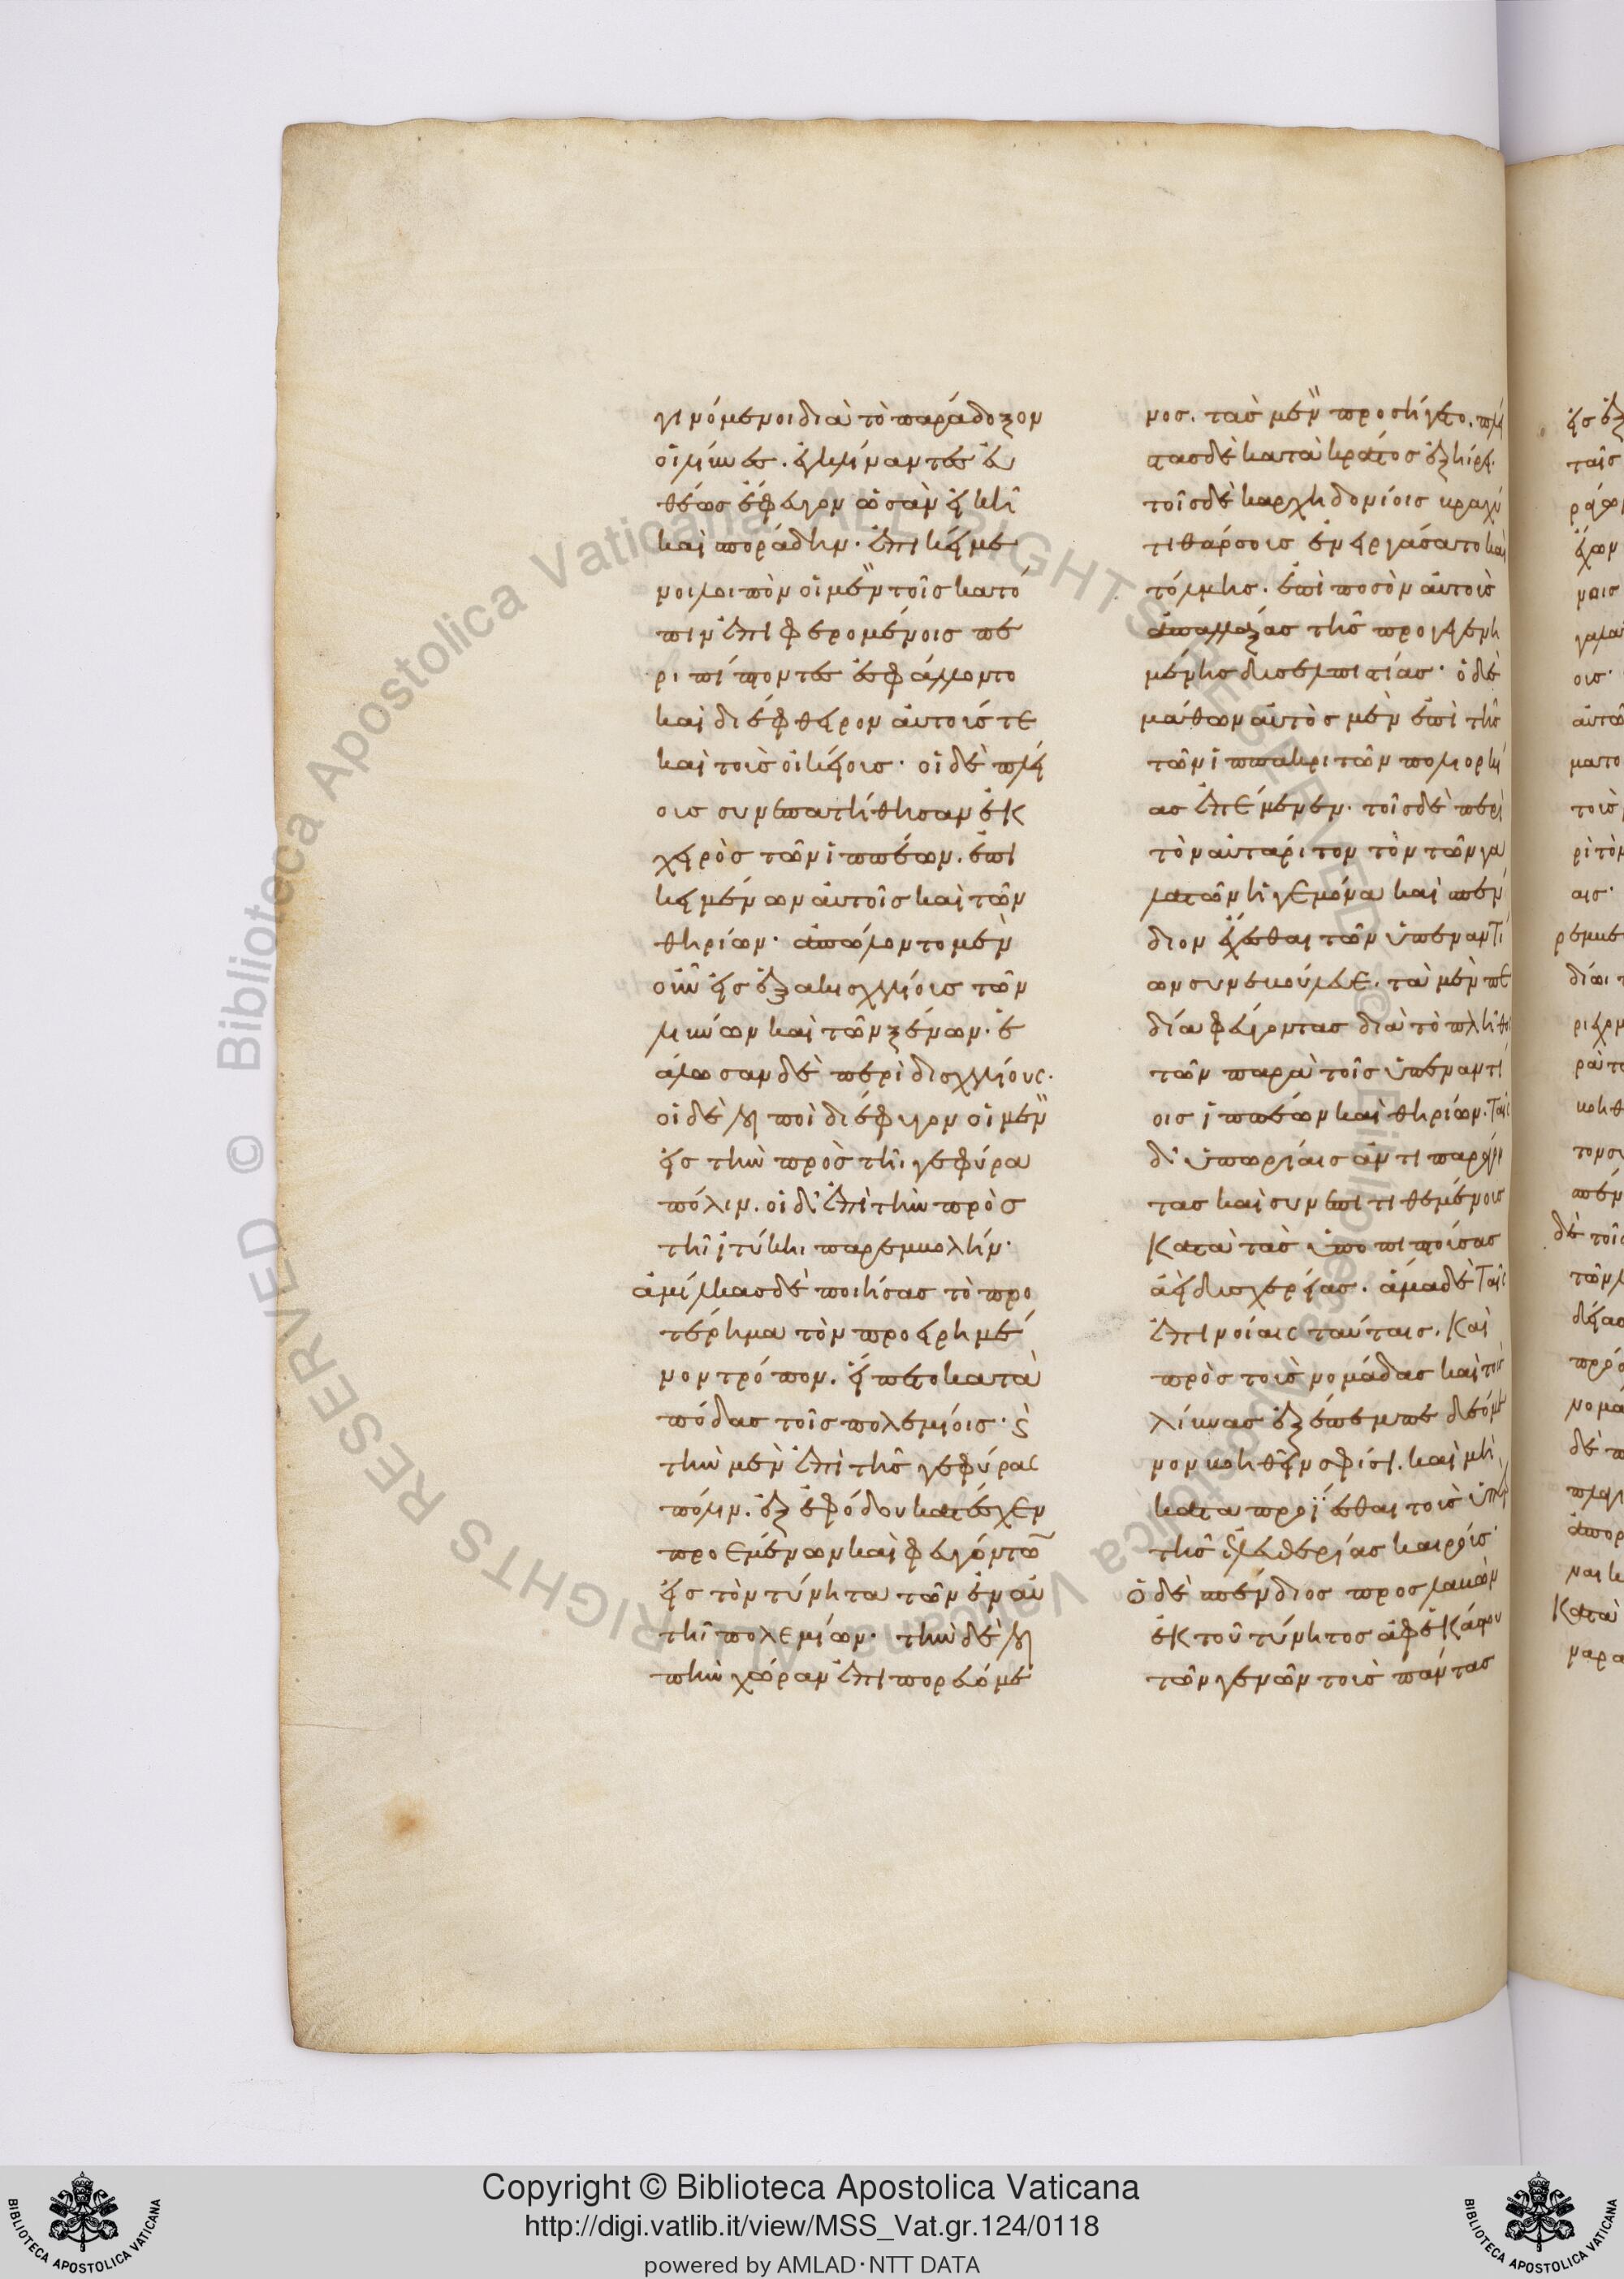 γινόμενοι διὰ τὸ παράδοξον
οἱ λίβυες. ἐκκλίναντες εὐ
θέως ἔφευγον ὡς ἂν εἰκῆ
καὶ ποράδην. ἐπικείμε
νοι λοιπὸν οἱ μὲν τοῖς κατό
πιν ἐπιφερομένοις πε
ριπίπτοντες ἐσφάλλοντο
καὶ διέφθειρον αὑτούς τε
καὶ τοὺς οἰκείους. οἱ δὲ πλεί
ους συνεπατήθησαν ἐκ
χειρὸς τῶν ἱππέων. ἐπι
κειμένων αὐτοῖς καὶ τῶν
θηρίων. ἀπώλοντο μὲν
οὖν εἰς ἑξακισχιλίους τῶν
λιβύων καὶ τῶν ξένων. ἑ
άλωσαν δὲ περὶ δισχιλίους.
οἱ δὲ λοιποὶ διέφυγον οἱ μὲν
εἰς τὴν πρὸς τῆι γεφύρα
πόλιν. οἱ δ' ἐπὶ τὴν πρὸς
τῆι ἰτύκηι παρεμβολήν.
ἀμίλκας δὲ ποιήσας τὸ προ
τέρημα τὸν προειρημέ
νον τρόπον. εἵπετο κατὰ
πόδας τοῖς πολεμίοις. ϛ
τὴν μὲν ἐπὶ τῆς γεφύρας
πόλιν. ἐξ ἐφόδου κατέσχεν
προεμένων καὶ φευγόντων
εἰς τὸν τύνητα τῶν ἐν αὐ
τῆι πολεμίων. τὴν δὲ λοι
πὴν χώραν ἐπιπορευόμε
νος. τὰς μὲν προσήγετο. πλεί
στας δὲ κατὰ κράτος ἐξήιρει.
τοῖς δὲ καρχηδονίοις βραχύ
τι θάρσους ἐνειργάσατο καὶ
τόλμης. ἐπὶ ποσὸν αὐτοὺς
ἀπαλλάξας τῆς προγεγενη
μένης δυσελπιστίας. ὁ δὲ
μάθων αὐτὸς μὲν ἐπὶ τῆς
τῶν ἱππακριτῶν πολιορκί
ας ἐπέμενεν. τοῖς δὲ περὶ
τὸν αὐτάριτον τὸν τῶν γα
λατῶν ἡγεμόνα καὶ σπέν
διον ἔχεσθαι τῶν ὑπεναντί
ων συνεβούλευε. τὰ μὲν πε
δία φεύγοντας διὰ τὸ πλῆθος
τῶν παρὰ τοῖς ὑπεναντί
οις ἱππέων καὶ θηρίων. ταῖς
δ' ὑπωρείαις ἀντιπαράγον
τας καὶ συνεπιτιθεμένους
κατὰ τὰς ὑποπιπτούσας
ἀεὶ δυσχερείας. ἅμα δὲ ταῖς
ἐπινοίαις ταύταις. καὶ
πρὸς τοὺς νομάδας καὶ τοὺς
λίβυας ἐξέπεμπε δεόμε
νος βοηθεῖν σφίσι. καὶ μὴ
καταπροΐεσθαι τοὺς ὑπὲρ
τῆς ἐλευθερίας καιρούς.
ὁ δὲ σπένδιος προσλαβὼν
ἐκ τοῦ τύνητος ἀφ' ἑκάστου
τῶν γενῶν τοὺς πάντας
Copyright © Biblioteca Apostolica Vaticana
http://digi.vatlib.it/view/MSS_Vat.gr.124/0118
powered by AMLAD·NTT DATA